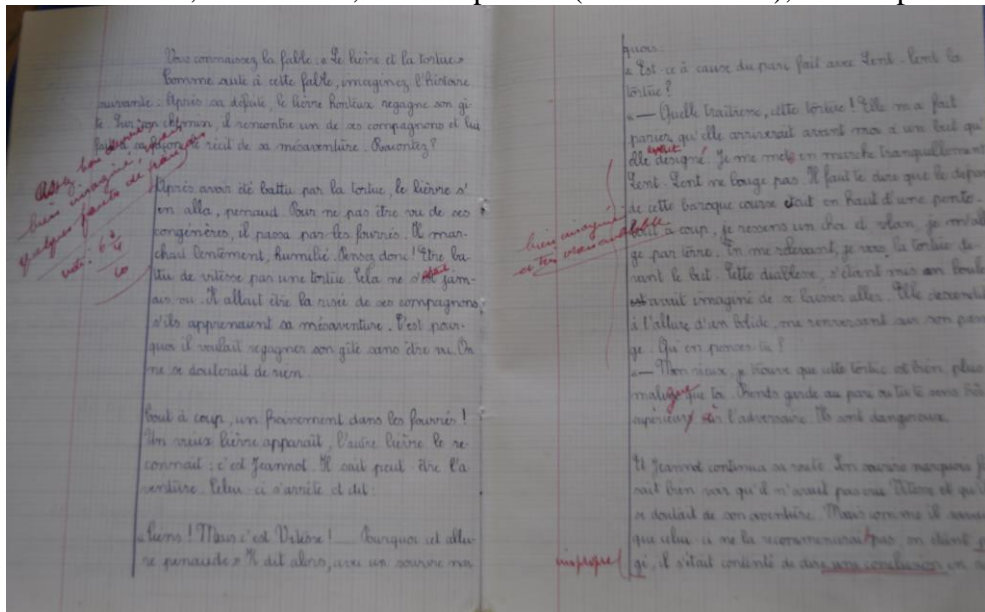 Vous connaissez la fable : « Le lièvre et la tortue »
Comme suite à cette fable, imaginez l'histoire
suivante : Après sa défaite, le lièvre honteux regagne son gî-
te. Sur son chemin, il rencontre un de ses compagnons et lui
fait à sa façon le récit de sa mésaventure. Racontez ?
Assez bon devoir
bien imaginé,
quelques fautes de français
Après avoir été battu par la tortue, le lièvre s'
en alla, penaud. Pour ne pas être vu de ses
congénères, il passa par les fourrés. Il mar-
chait lentement, humilié. Pensez donc ! Être ba-
ttu de vitesse par une tortue. Cela ne s'était jam-
ais vu. Il allait être la risée de ses compagnons,
s'ils apprenaient sa mésaventure. C'est pour-
quoi il voulait regagner son gîte sans être vu. On
ne se douterait de rien.
Tout à coup, un froissement dans les fourrés !
Un vieux lièvre apparaît, l'autre lièvre le re-
connaît : c'est Jeannot. Il sait peut-être l'a-
venture. Celui-ci s'arrête et dit :
« Tiens ! Mais c'est Vitesse ! ___ Pourquoi cet allu-
re penaude » Il dit alors, avec un sourire na
quois
« Est-ce à cause du pari fait avec Lent-Lent la
tortue ?
« — Quelle traîtrise, cette tortue ! Elle m'a fait
parier qu'elle arriverait avant moi à un but qu'
elle avait désigné. Je me mets en marche tranquillement
Lent-Lent ne bouge pas. Il faut te dire que le départ
de cette baroque course était en haut d'une pente.
Tout à coup, je ressens un choc et vlan, je m'al
ge par terre. En me relevant, je vois la tortue de-
vant le but. Cette diablesse, s'étant mis en boule
avait imaginé de se laisser aller. Elle descendit
à l'allure d'un bolide, me renversant sur son passa
ge. Qu'en penses-tu ?
bien imaginé
et très vraisemblable
« — Mon vieux, je trouve que cette tortue est bien plus
maligne que toi. Prends garde au pari où tu te sens
supérieur à l'adversaire. Ils sont dangereux.
Et Jeannot continua sa route. Son sourire narquois
sait bien voir qu'il n'avait pas cru Vitesse et qu'
se doutait de son aventure. Mais comme il savait
que celui-ci ne la recommencerait pas,
impropre
gi, il s'était contenté de dire une conclusion en